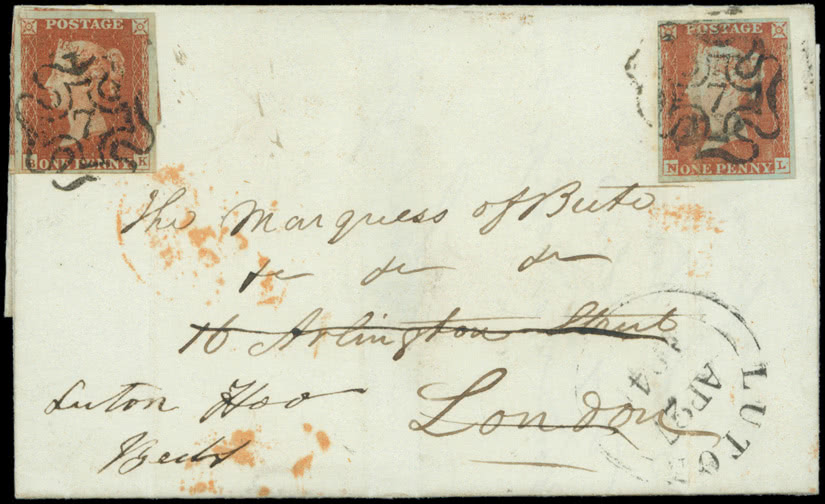 POSTAGE
7
ONE PENNY
K
POSTAGE
7
N ONE PENNY L
The Marquess of Bute
&c &c &c
16 Arlington Street
London
Luton Hoo
Beds
LUTON
AP 27